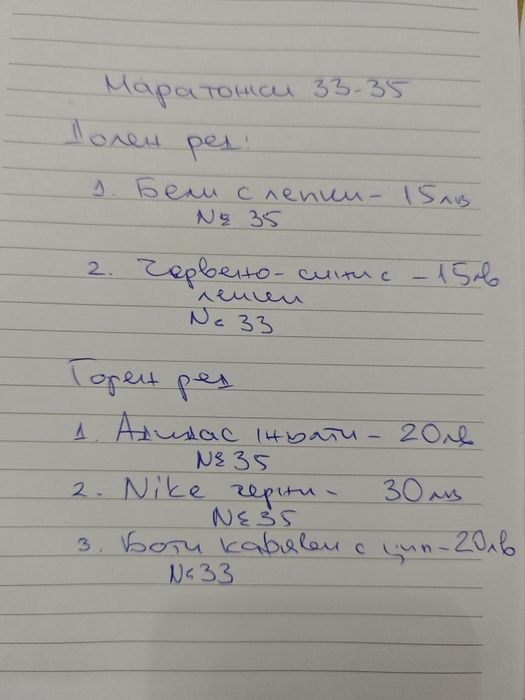 Маратонки 33-35
Долен ред:
1. Бели с лепки - 15лв
№ 35
2. Червено-сини с - 15лв
лепки
№ 33
Горен ред
1. Адидас жълти - 20лв
№ 35
2. Nike черни - 30лв
№ 35
3. Боти кафяви с цип - 20лв
№ 33